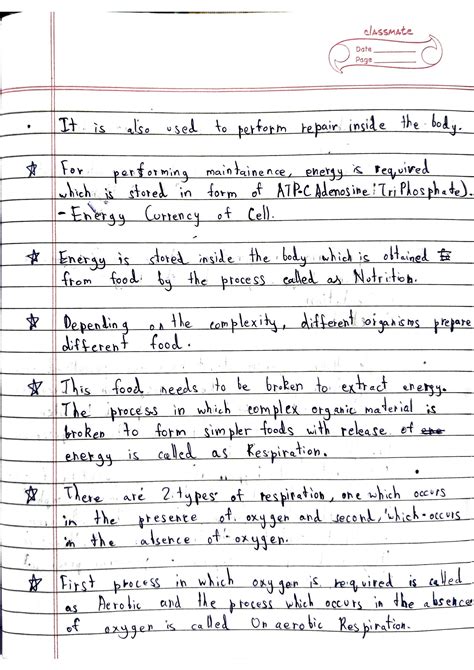 classmate
Date
Page
• It is also used to perform repair inside the body.
☆ For performing maintainence, energy is required
which is stored in form of ATP-(Adenosine Tri Phosphate).
- Energy Currency of Cell.
☆ Energy is stored inside the body which is obtained
from food by the process called as Nutrition.
☆ Depending on the complexity, different organisms prepare
different food.
☆ This food needs to be broken to extract energy.
The process in which complex organic material is
broken to form simpler foods with release of
energy is called as Respiration.
☆ There are 2 types of respiration, one which occurs
in the presence of oxygen and second, which occurs
in the absence of oxygen.
☆ First process in which oxygen is required is called
as Aerobic and the process which occurs in the absence
of oxygen is called Onaerobic Respiration.